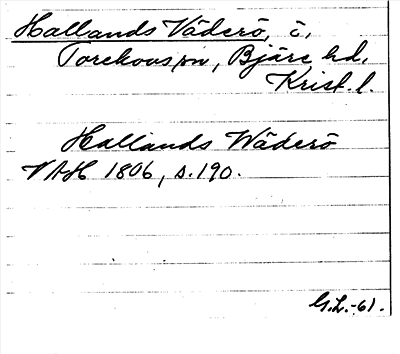 Hallands Väderö, ö,
Torekovs sn, Bjäre hd,
Krist. l.
Hallands Wäderö
VAH 1806, s. 190.
G.L.-61.